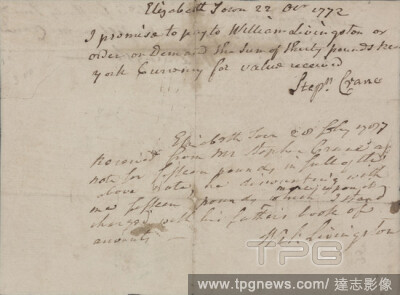 Elizabeth Town 22 Octr 1772
I promise to pay to William Livingston or
order on Demand the Sum of thirty pounds New
York Currency for value received
Stepn Crane
Elizabeth Town 28 Feby
Received from Mr Stephen Crane a
note for fifteen pounds in full of the
above note he discounting with
me fifteen pounds which I stand
charged with his father's book of
accounts
Wil. Livingston
TPG
www.tpgnews.com / 達志影像